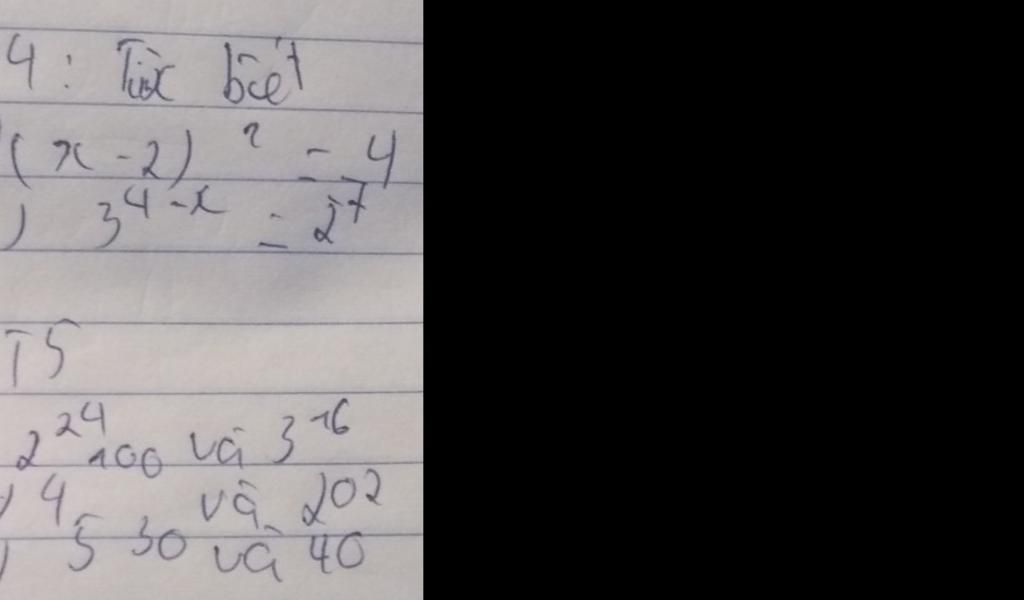 4: Tìx biết
(x-2)² = 4
) 3⁴⁻ˣ = 2⁷
T5
2²⁴ và 3¹⁶
) 4¹⁰⁰ và 202
) 5 30 và 40